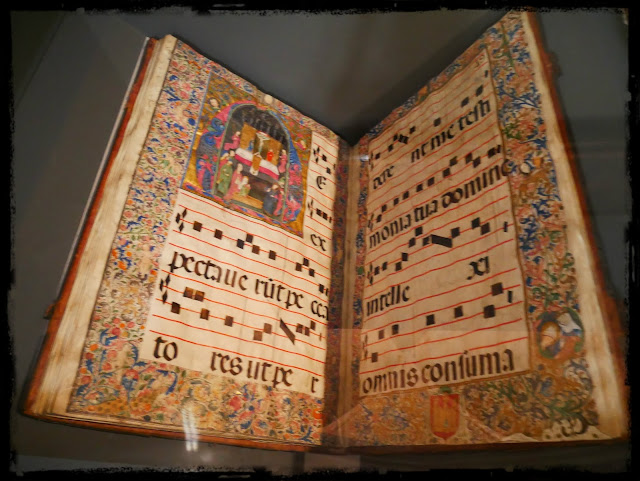 E
ex
pectaue rūt pe cca
to res ut pe r
dere nt me testi
monia tua domine
intelle xi
omnis consuma